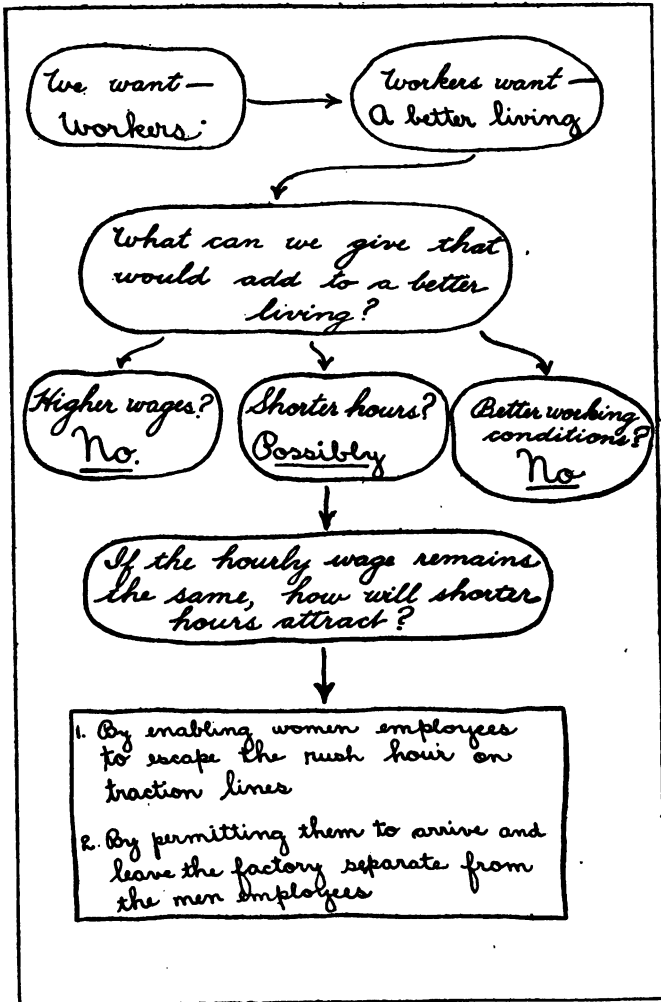 We want —
Workers.
Workers want —
A better living
What can we give that
would add to a better
living?
Higher wages?
No.
Shorter hours?
Possibly
Better working
conditions?
No
If the hourly wage remains
the same, how will shorter
hours attract?
1. By enabling women employees
to escape the rush hour on
traction lines
2. By permitting them to arrive and
leave the factory separate from
the men employees